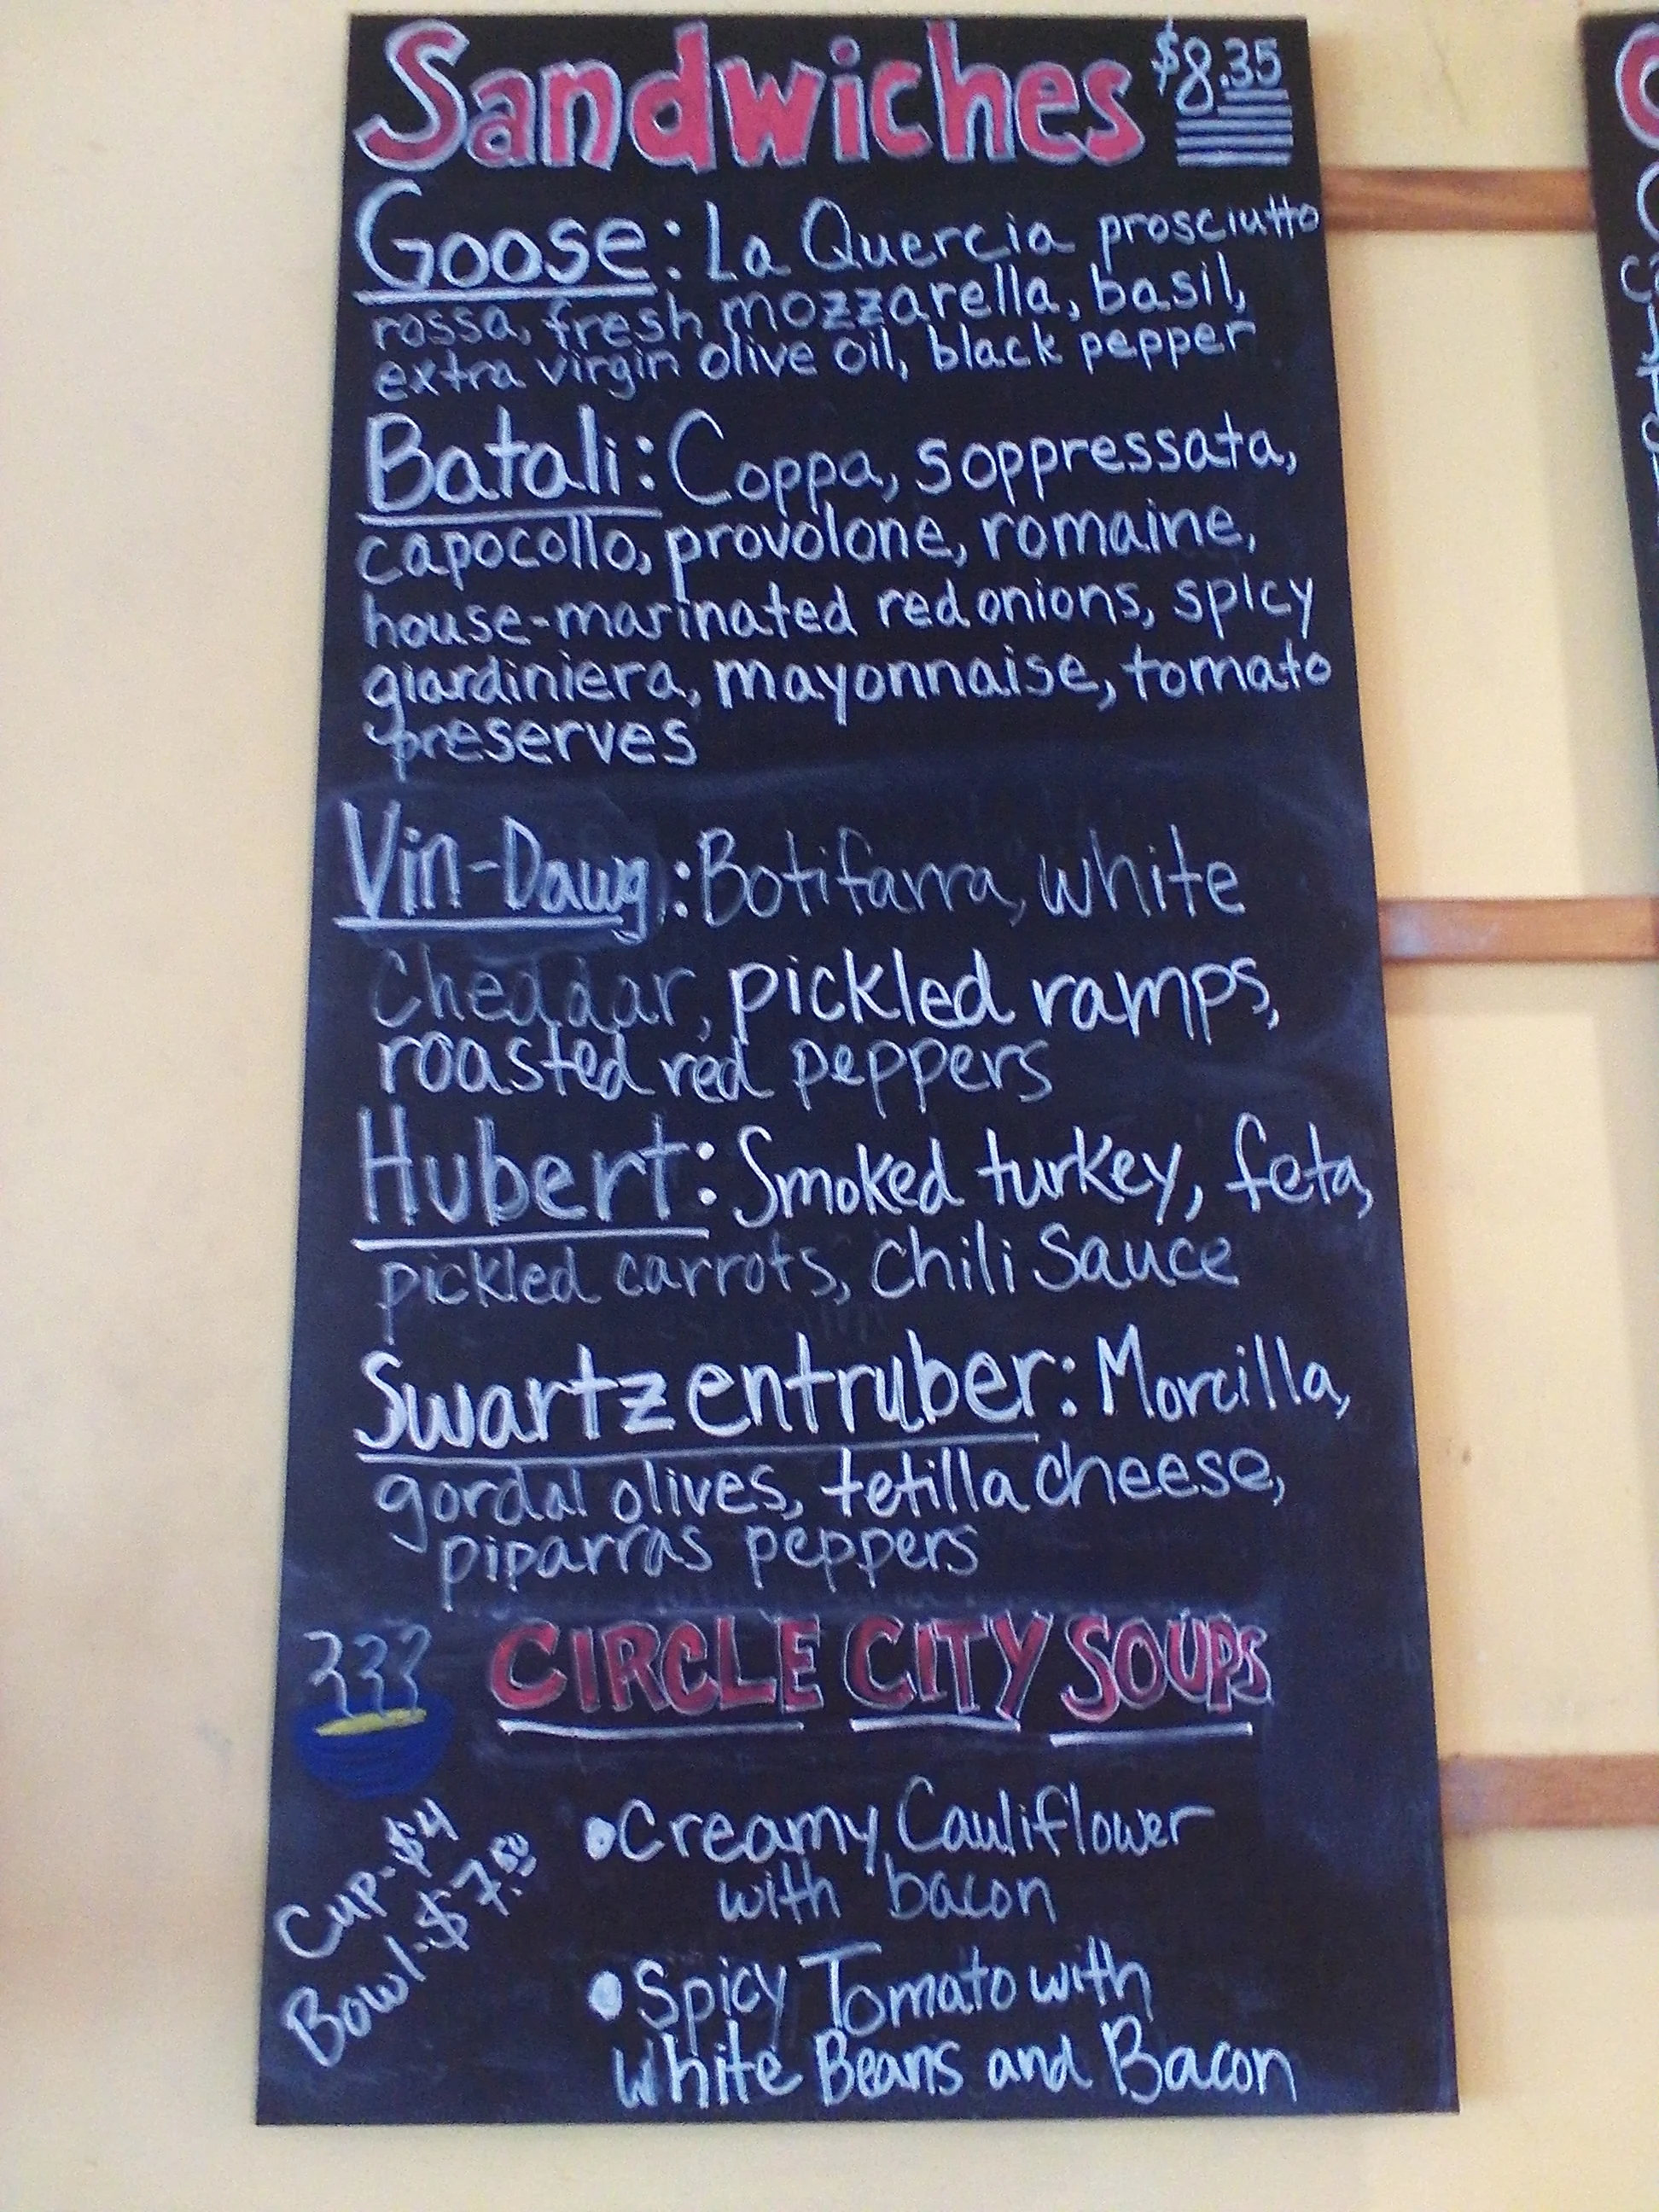 Sandwiches $8.35
Goose: La Quercia prosciutto
rossa, fresh mozzarella, basil,
extra virgin olive oil, black pepper
Batali: Coppa, soppressata,
capocollo, provolone, romaine,
house-marinated red onions, spicy
giardiniera, mayonnaise, tomato
preserves
Vin-Dawg: Botifarra, white
Cheddar, pickled ramps,
roasted red peppers
Hubert: Smoked turkey, feta,
pickled carrots, Chili Sauce
Swartzentruber: Morcilla,
gordal olives, tetilla cheese,
piparras peppers
CIRCLE CITY SOUPS
Cup-$4
Bowl-$7.50
•Creamy Cauliflower
with bacon
•Spicy Tomato with
White Beans and Bacon